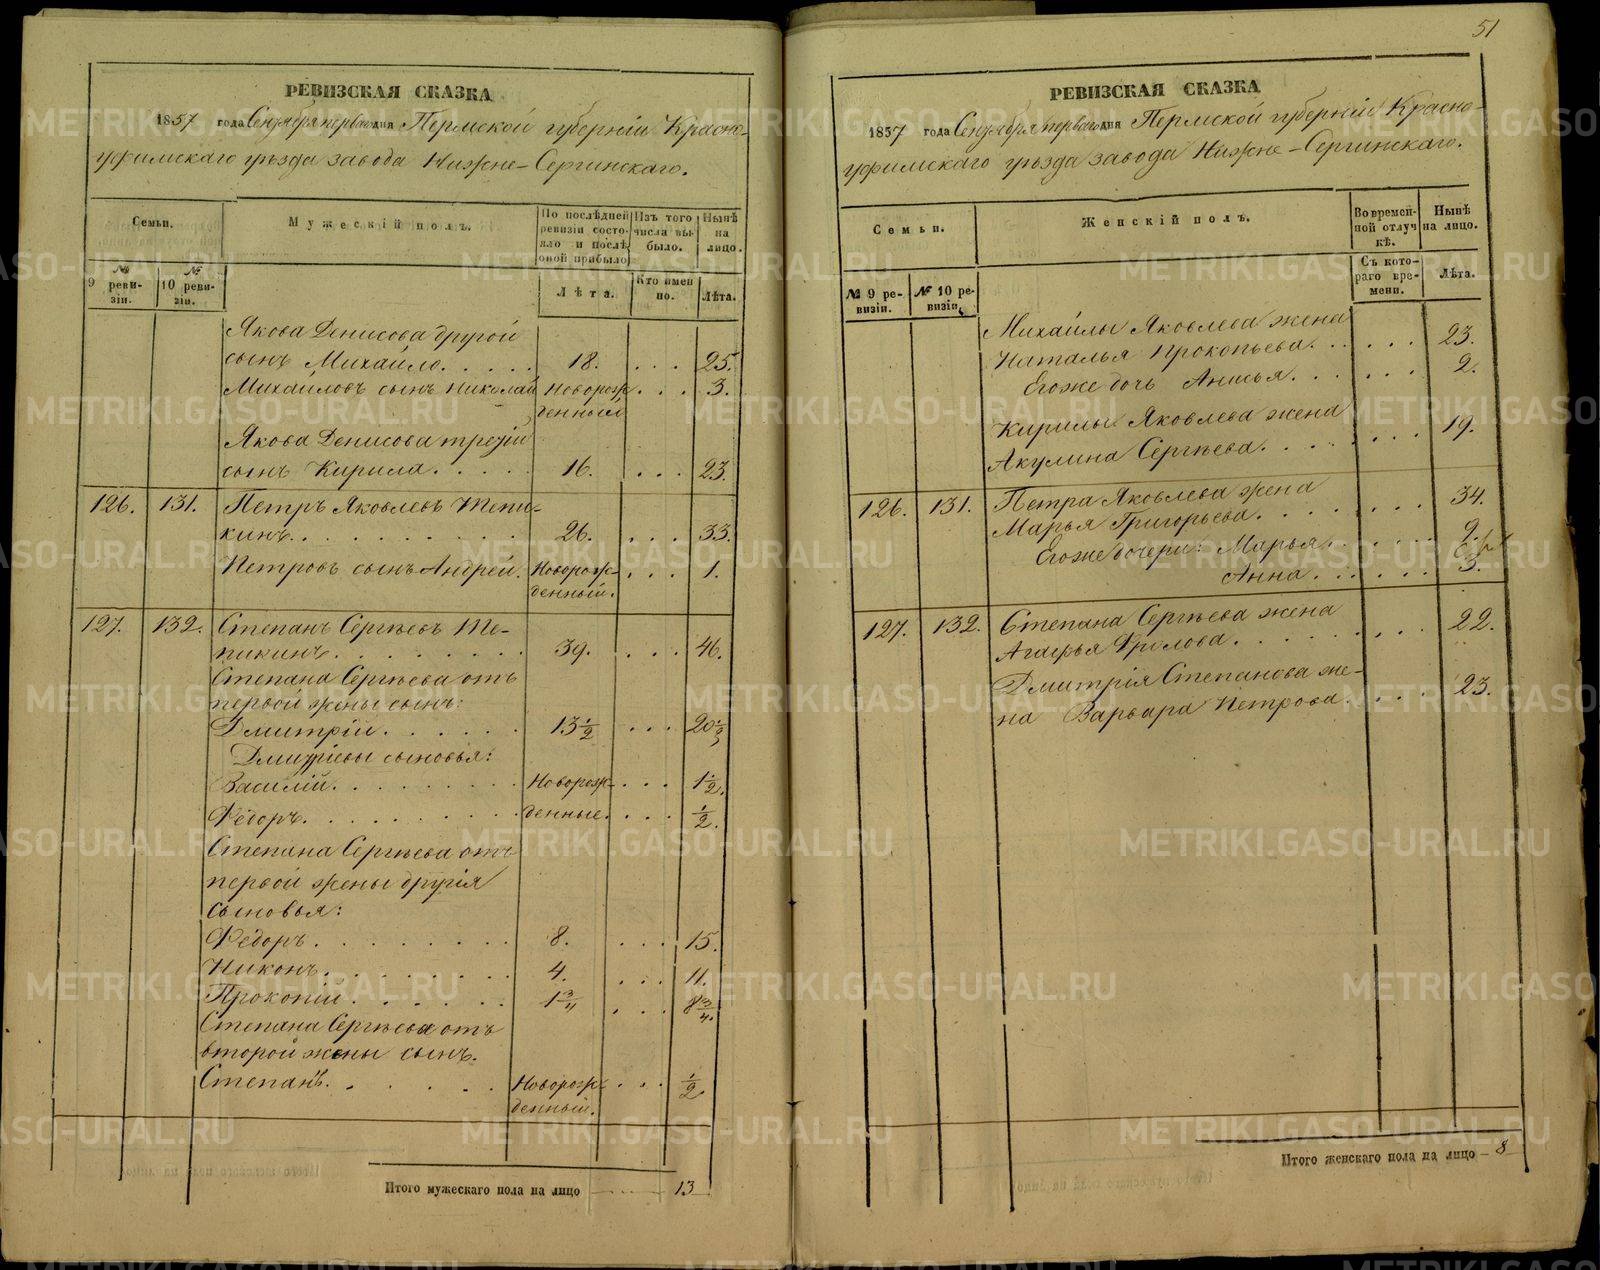 РЕВИЗСКАЯ СКАЗКА
1857 года Сентября перваго дня Пермской губерніи Красно-
уфимскаго уѣзда завода Нижне-Сергинскаго.
Семьи.
Мужескій полъ.
По послѣдней ревизіи состояло и послѣ оной прибыло
Изъ того числа выбыло.
Нынѣ на лицо.
№ 9 ревизіи.
№ 10 ревизіи.
Лѣта.
Кто именно.
Лѣта.
Якова Денисова другой
сынъ Михайло. 18. 25.
Михайловъ сынъ Николай Новорож- 3.
денный
Якова Денисова третій
сынъ Кирила. 16. 23.
126. 131. Петръ Яковлевъ Тепи-
кинъ. 26. 33.
Петровъ сынъ Андрей. Новорож- 1.
денный.
127. 132. Степанъ Сергѣевъ Те-
пикинъ. 39. 46.
Степана Сергѣева отъ
первой жены сынъ:
Дмитрій. 13 1/2 20 1/2
Дмитріевы сыновья:
Василій. Новорож- 1 1/2.
Ѳедоръ. денные. 1/2.
Степана Сергѣева отъ
первой жены другія
сыновья:
Ѳедоръ. 8. 15.
Никонъ. 4. 11.
Прокопій. 1 3/4 8 3/4.
Степана Сергѣева отъ
второй жены сынъ.
Степанъ. Новорож- 1/2
денный.
Итого мужескаго пола на лицо 13
51
РЕВИЗСКАЯ СКАЗКА
1857 года Сентября перваго дня Пермской губерніи Красно-
уфимскаго уѣзда завода Нижне-Сергинскаго.
Семьи.
Женскій полъ.
Во временной отлучкѣ.
Нынѣ на лицо.
№ 9 ревизіи.
№ 10 ревизіи.
Съ котораго времени.
Лѣта.
Михайлы Яковлева жена
Наталья Прокопьева. 23.
Егоже дочь Анисья. 2.
Кирилы Яковлева жена
Акулина Сергѣева. 19.
126. 131. Петра Яковлева жена
Марья Григорьева. 34.
Егоже дочери: Марья. 9.
Анна. 3.
127. 132. Степана Сергѣева жена
Агафья Фролова. 22.
Дмитрія Степанова же-
на Варвара Петрова. 23.
Итого женскаго пола на лицо 8
METRIKI.GASO-URAL.RU